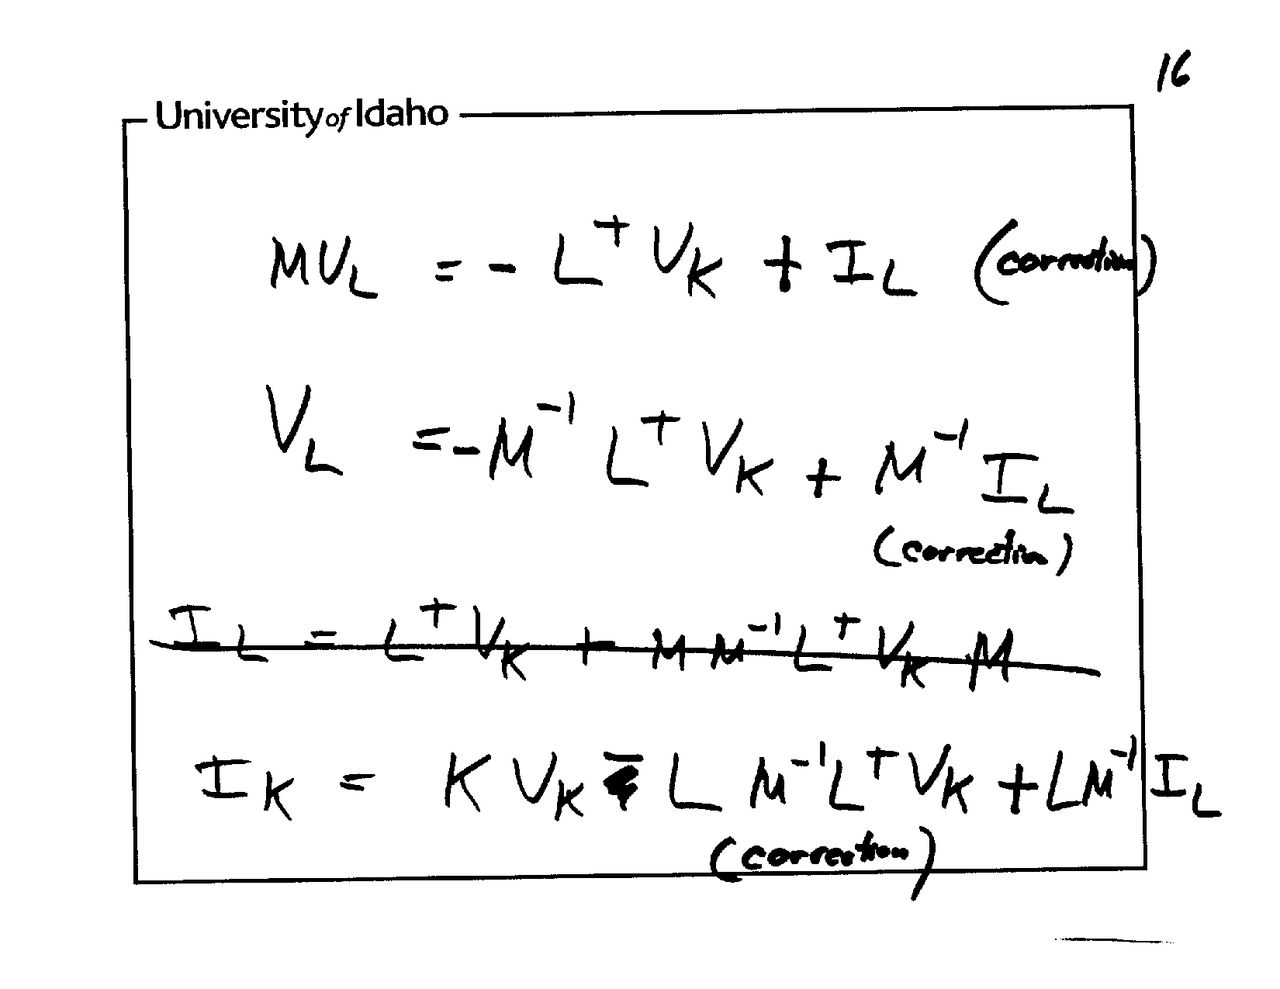 16
University of Idaho
MV_L = - L^+ V_K + I_L (correction)
V_L = - M^-1 L^+ V_K + M^-1 I_L
(correction)
I_L = L^+ V_K + M M^-1 L^+ V_K M
I_K = K V_K - L M^-1 L^+ V_K + L M^-1 I_L
(correction)